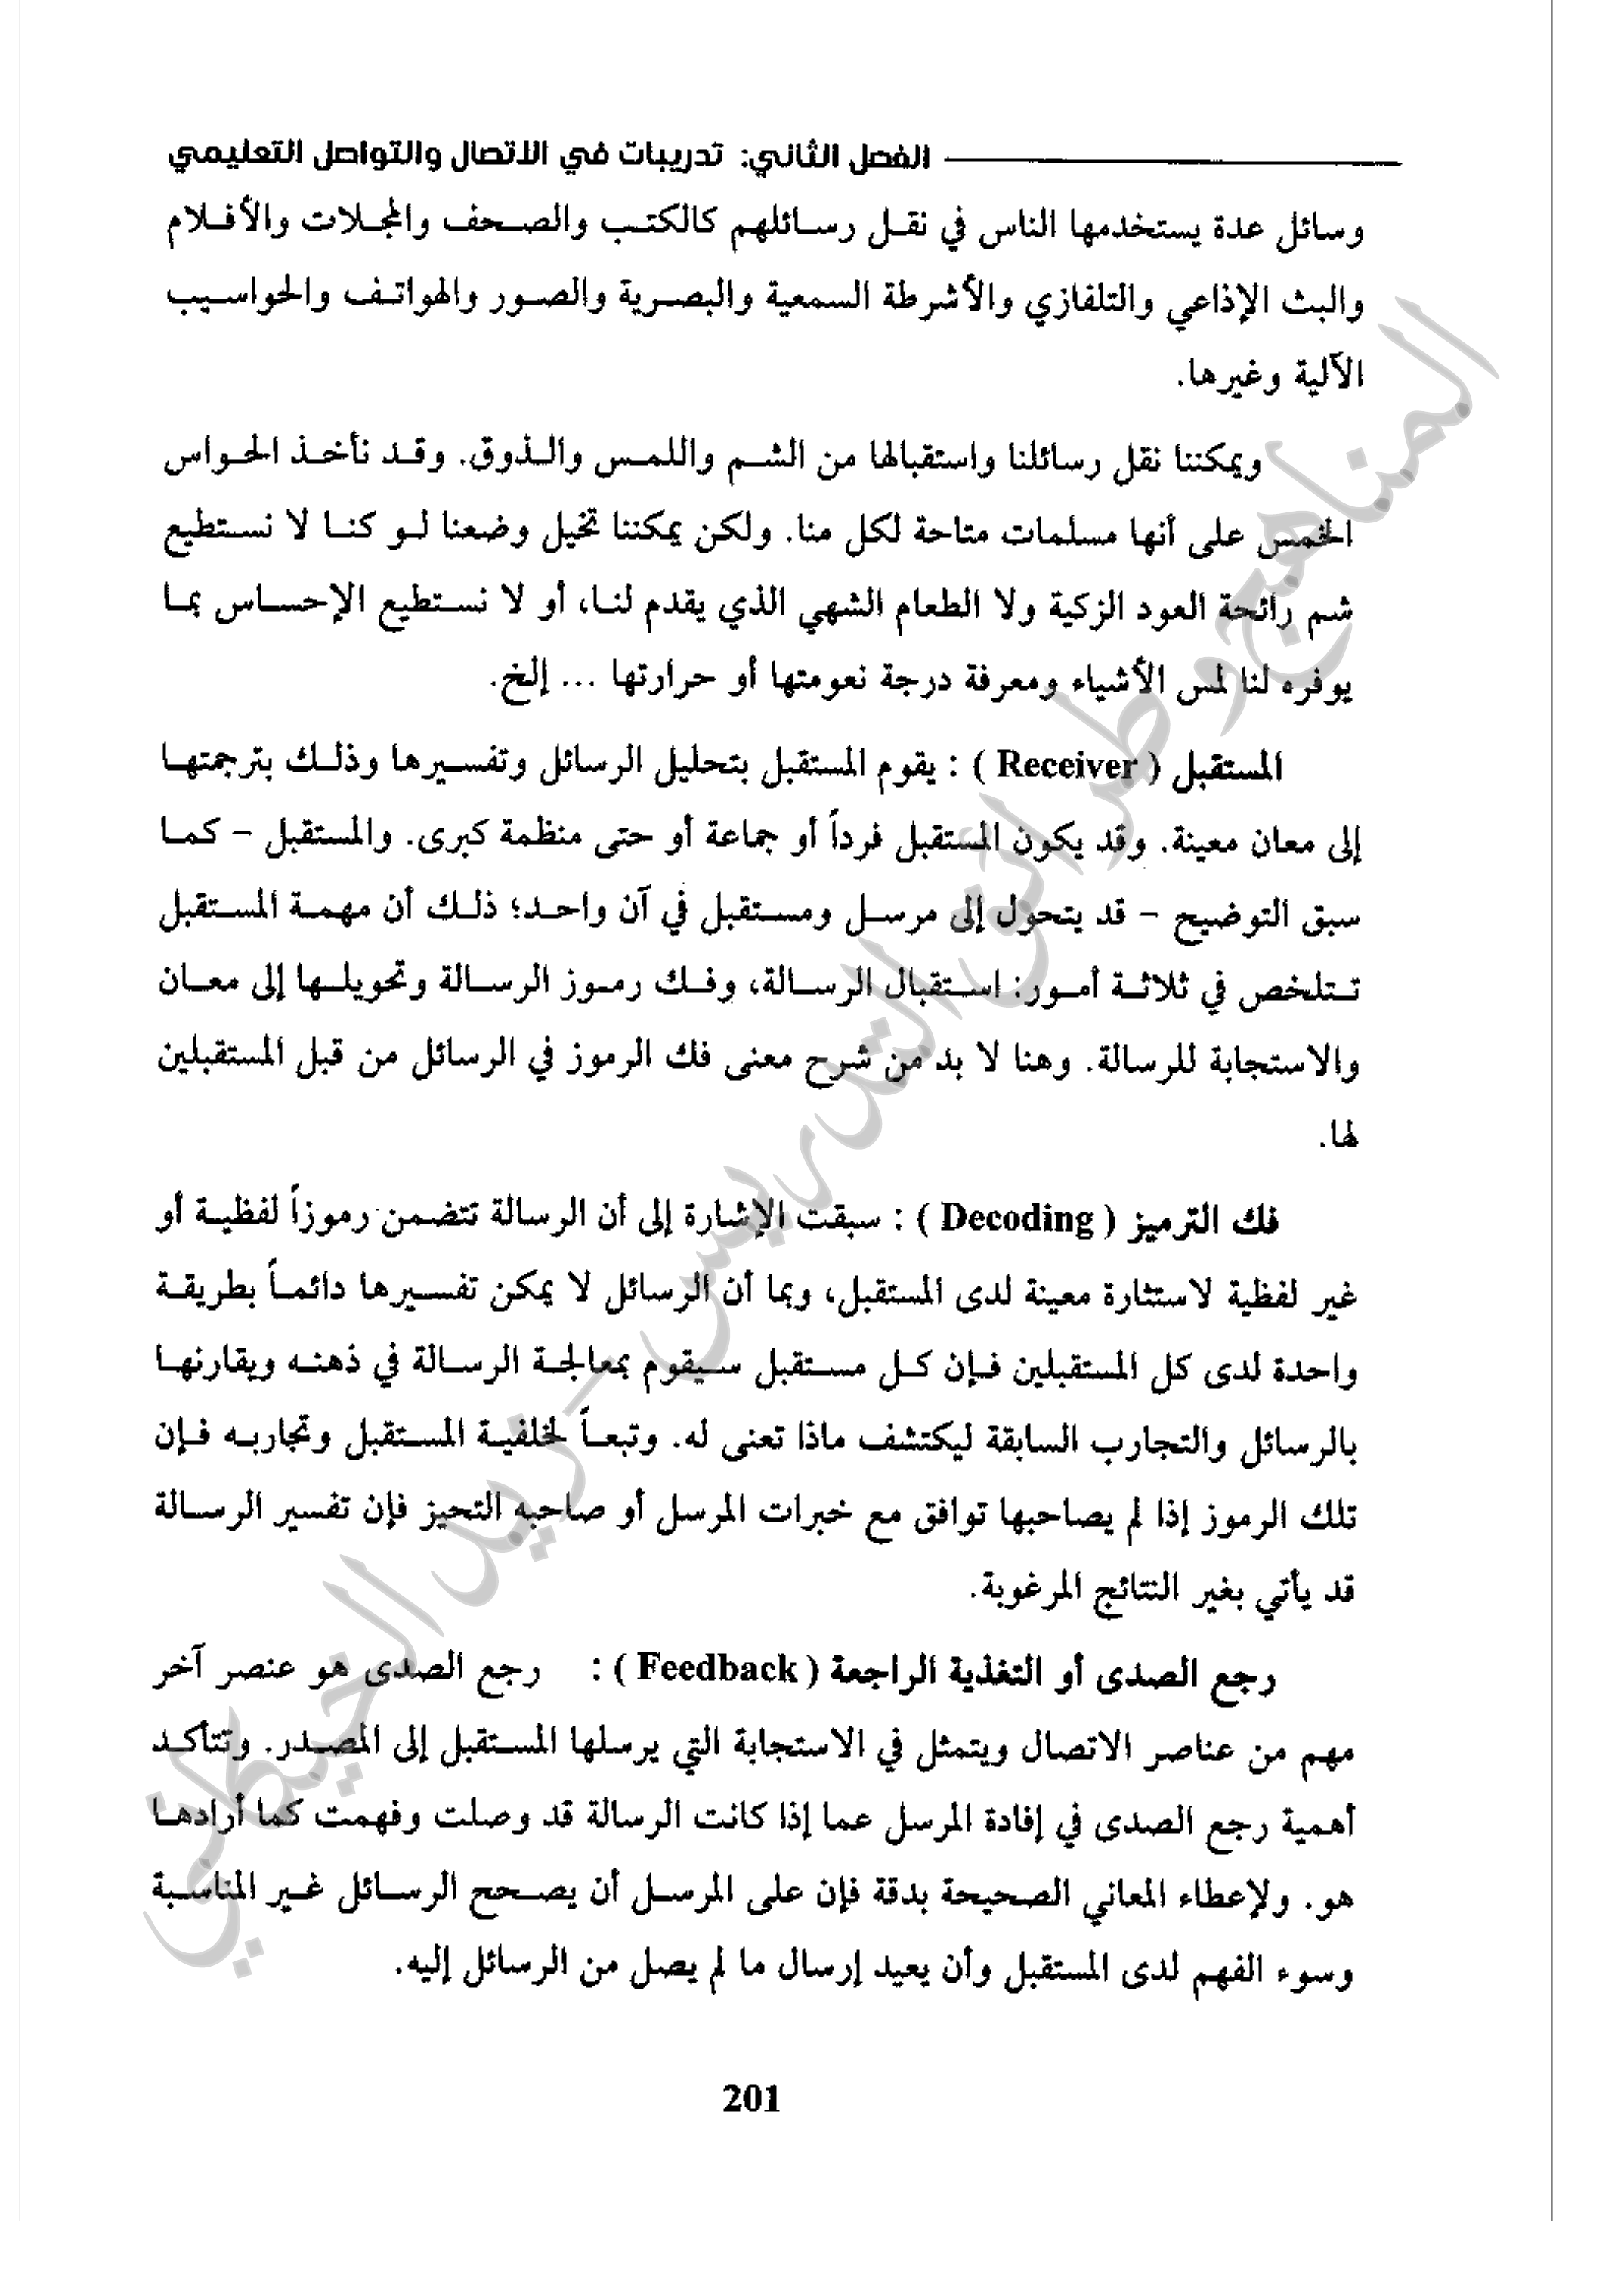 الفصل الثاني: تدريبات في الاتصال والتواصل التعليمي
وسائل عدة يستخدمها الناس في نقل رسائلهم كالكتب والصحف والمجلات والأفلام
والبث الإذاعي والتلفازي والأشرطة السمعية والبصرية والصور والهواتف والحواسيب
الآلية وغيرها.
ويمكننا نقل رسائلنا واستقبالها من الشم واللمس والذوق. وقد نأخذ الحواس
الخمس على أنها مسلمات متاحة لكل منا. ولكن يمكننا تخيل وضعنا لو كنا لا نستطيع
شم رائحة العود الزكية ولا الطعام الشهي الذي يقدم لنا، أو لا نستطيع الإحساس بما
يوفره لنا لمس الأشياء ومعرفة درجة نعومتها أو حرارتها ... إلخ.
المستقبل ( Receiver ) : يقوم المستقبل بتحليل الرسائل وتفسيرها وذلك بترجمتها
إلى معان معينة. وقد يكون المستقبل فرداً أو جماعة أو حتى منظمة كبرى. والمستقبل – كما
سبق التوضيح – قد يتحول إلى مرسل ومستقبل في آن واحد؛ ذلك أن مهمة المستقبل
تتلخص في ثلاثة أمور: استقبال الرسالة، وفك رموز الرسالة وتحويلها إلى معان
والاستجابة للرسالة. وهنا لا بد من شرح معنى فك الرموز في الرسائل من قبل المستقبلين
لها.
فك الترميز ( Decoding ) : سبقت الإشارة إلى أن الرسالة تتضمن رموزاً لفظية أو
غير لفظية لاستثارة معينة لدى المستقبل، وبما أن الرسائل لا يمكن تفسيرها دائماً بطريقة
واحدة لدى كل المستقبلين فإن كل مستقبل سيقوم بمعالجة الرسالة في ذهنه ويقارنها
بالرسائل والتجارب السابقة ليكتشف ماذا تعنى له. وتبعاً لخلفية المستقبل وتجاربه فإن
تلك الرموز إذا لم يصاحبها توافق مع خبرات المرسل أو صاحبه التحيز فإن تفسير الرسالة
قد يأتي بغير النتائج المرغوبة.
رجع الصدى أو التغذية الراجعة ( Feedback ) : رجع الصدى هو عنصر آخر
مهم من عناصر الاتصال ويتمثل في الاستجابة التي يرسلها المستقبل إلى المصدر. وتتأكد
أهمية رجع الصدى في إفادة المرسل عما إذا كانت الرسالة قد وصلت وفهمت كما أرادها
هو. ولإعطاء المعاني الصحيحة بدقة فإن على المرسل أن يصحح الرسائل غير المناسبة
وسوء الفهم لدى المستقبل وأن يعيد إرسال ما لم يصل من الرسائل إليه.
201
المناهج وطرائق التدريس - زيد الخيكاني